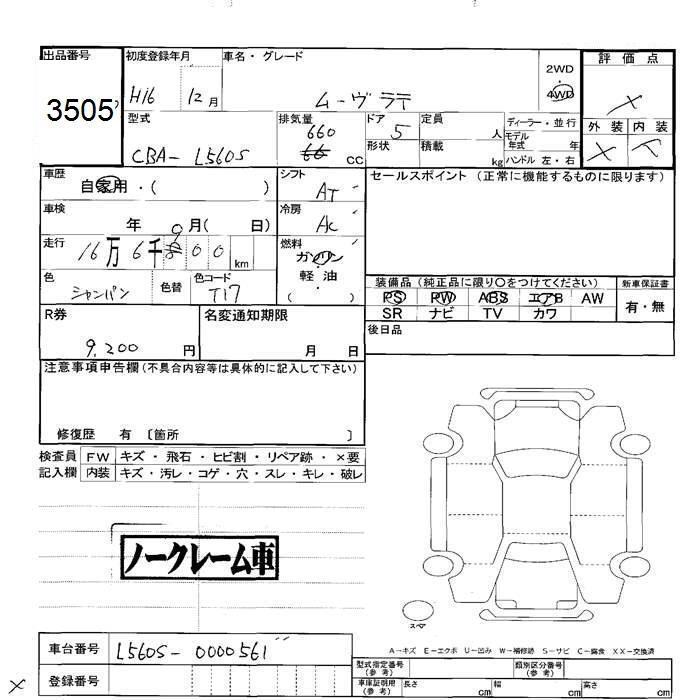 出品番号
3505
初度登録年月
H16 12月
車名・グレード
ムーヴラテ
2WD
・
4WD
評価点
X
外装 内装
X
型式
CBA-L560S
排気量
660
66 cc
ドア
5
形状
定員
人
積載
kg
ディーラー・並行
モデル年式 年
ハンドル 左・右
車歴
自家用・( )
車検
年 9月( 日)
走行
16万6千 00km
色
シャンパン
色替
色コード
T17
シフト
AT
冷房
AC
燃料
ガソリン
・
軽油
( )
セールスポイント (正常に機能するものに限ります)
装備品 (純正品に限り○をつけてください)
新車保証書
PS PW ABS エアB AW
有・無
SR ナビ TV カワ
後日品
R券
9,200円
名変通知期限
月 日
注意事項申告欄(不具合内容等は具体的に記入して下さい)
修復歴 有 〔箇所 〕
検査員
記入欄
FW キズ・飛石・ヒビ割・リペア跡・×要
内装 キズ・汚レ・コゲ・穴・スレ・キレ・破レ
ノークレーム車
スペア
A-キズ E-エクボ U-凹み W-補修跡 S-サビ C-腐食 XX-交換済
車台番号
L560S-0000561
登録番号
X
型式指定番号
(参考)
類別区分番号
(参考)
車庫証明用
(参考)
長さ cm
幅 cm
高さ cm